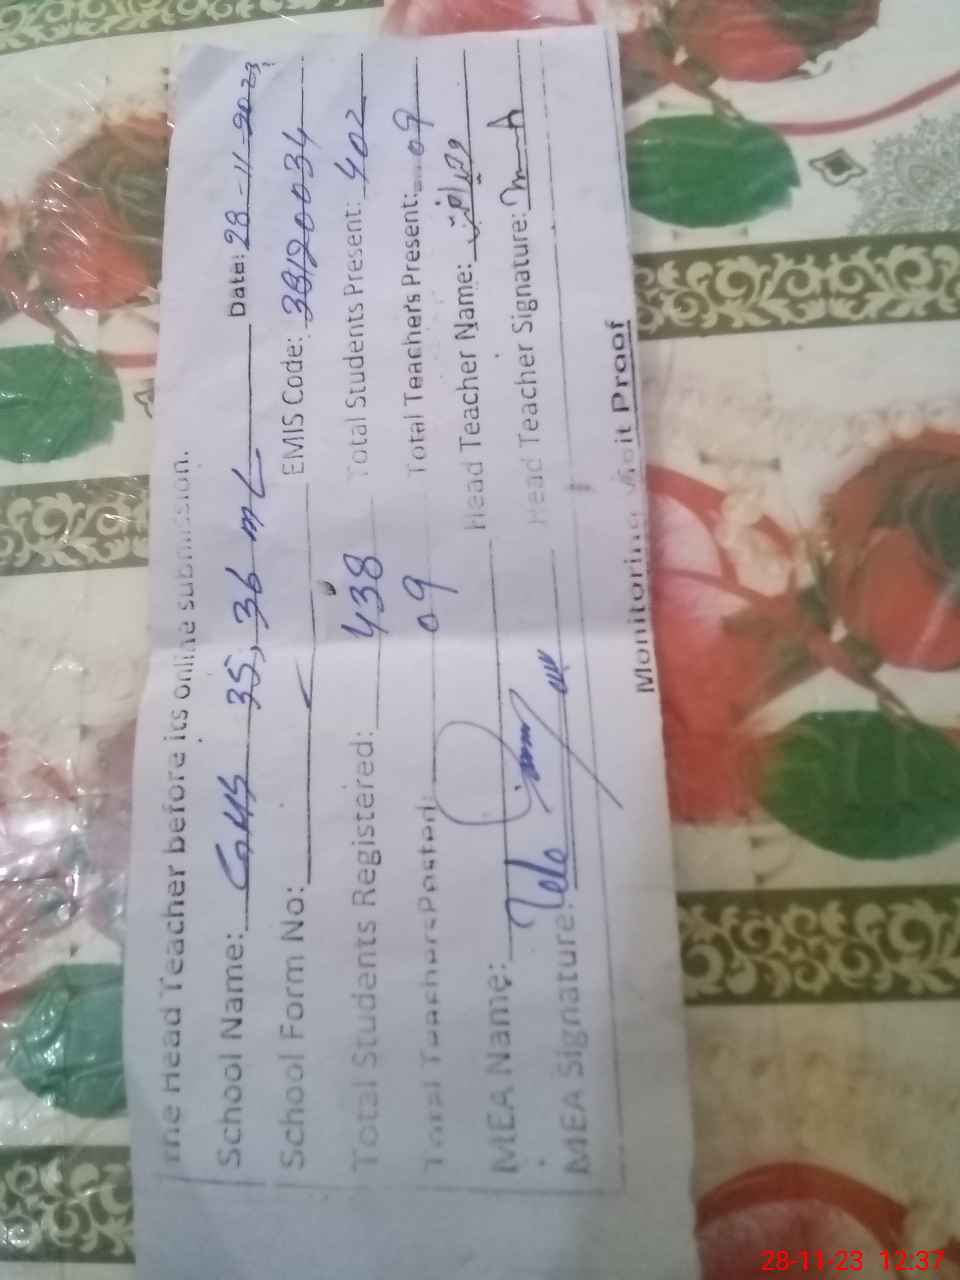 The Head Teacher before its online submission.
School Name: GMHS 35, 36 ML Date: 28-11-2023
School Form No: EMIS Code: 38120034
Total Students Registered: 438 Total Students Present: 402
Total Teachers Posted: 09 Total Teachers Present: 09
MEA Name: Head Teacher Name:
MEA Signature: Head Teacher Signature:
Monitoring Visit Proof
28-11-23 12:37